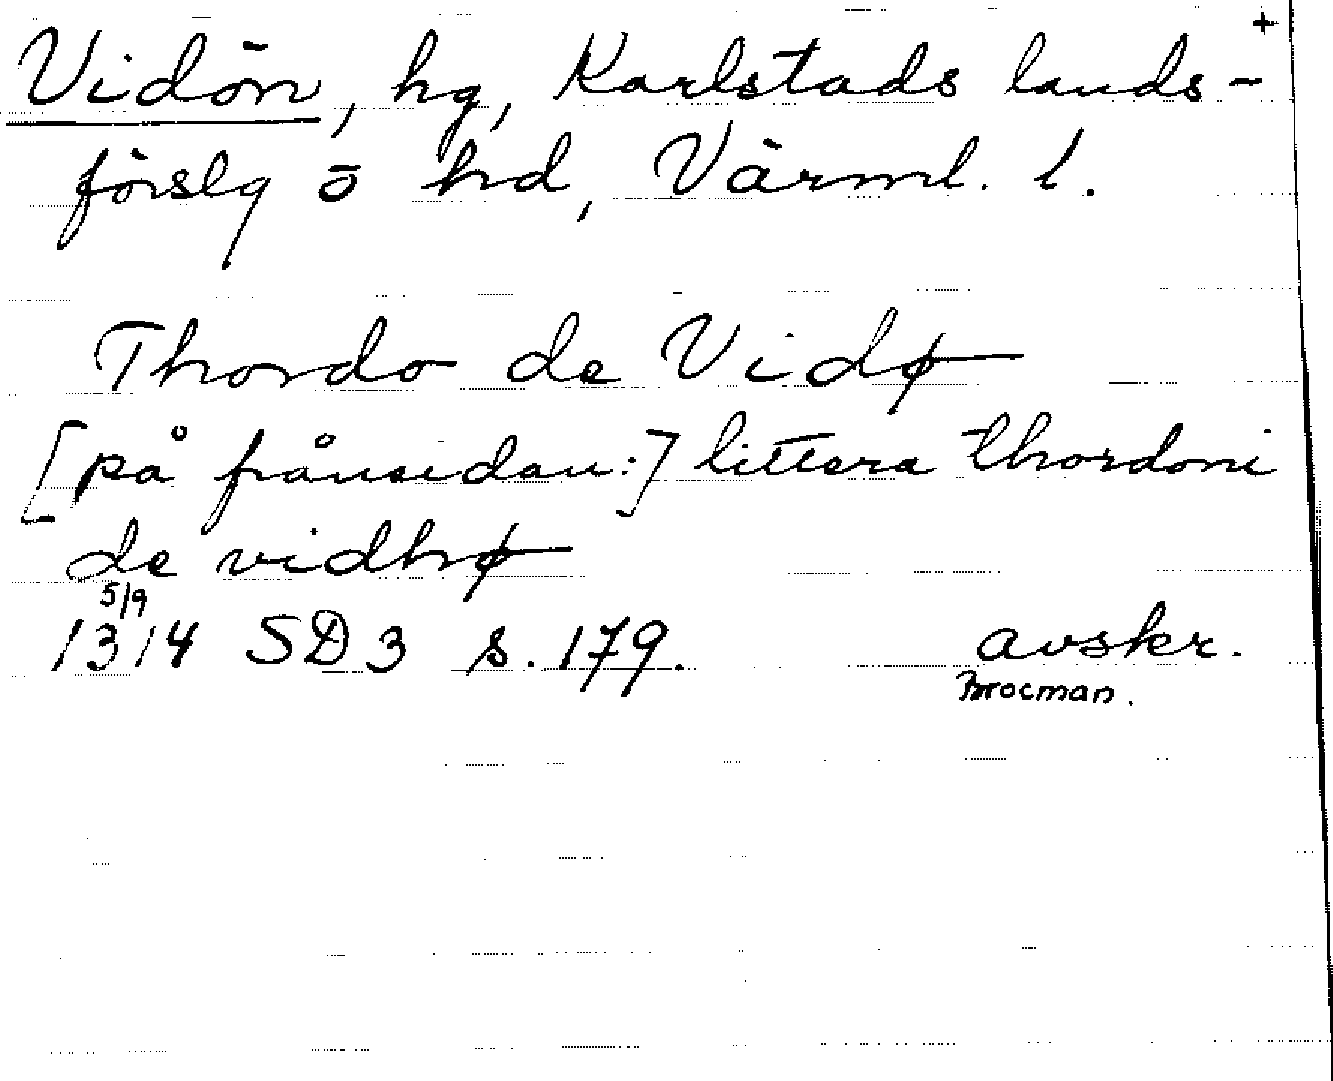 +
Vidön, hg, Karlstads lands-
förslg o hd, Värml. l.
Thordo de Vidø
[på frånsidan:] littera thordoni
de vidhø
5/9
1314 SD 3 s. 179. avskr.
Brocman.